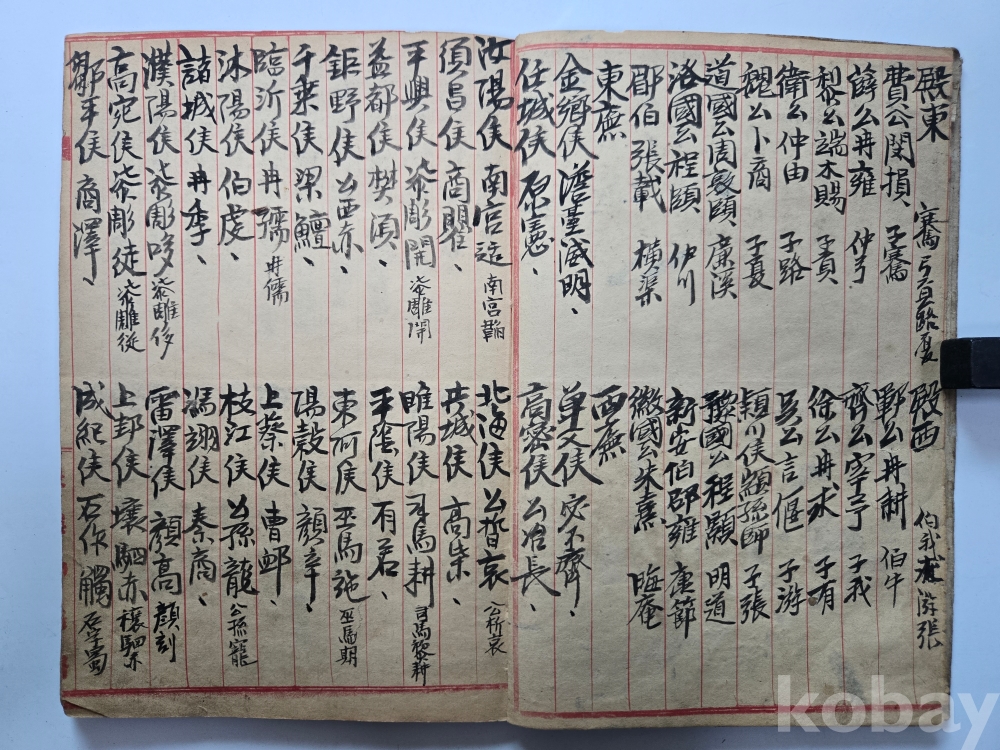 殿東 騫弓貢路夏 殿西 伯我有游張
費公閔損 子騫 鄆公冉耕 伯牛
薛公冉雍 仲弓 齊公宰予 子我
黎公端木賜 子貢 徐公冉求 子有
衛公仲由 子路 吳公言偃 子游
魏公卜商 子夏 穎川侯顓孫師 子張
道國公周敦頤 濂溪 豫國公程顥 明道
洛國公程頤 伊川 新安伯邵雍 康節
郿伯張載 橫渠 徽國公朱熹 晦庵
東廡 西廡
金鄉侯 澹臺滅明、 單父侯 宓不齊、
任城侯 原憲、 高密侯 公冶長、
汝陽侯 南宮适 南宮縚 北海侯 公晳哀 公析哀
須昌侯 商瞿、 共城侯 高柴、
平輿侯 漆彫開 漆雕開 睢陽侯 司馬耕 司馬黎耕
益都侯 樊須、 平陰侯 有若、
鉅野侯 公西赤、 東阿侯 巫馬施 巫馬期
千乘侯 梁鱣、 陽穀侯 顔辛、
臨沂侯 冉孺 冉儒 上蔡侯 曹卹、
沐陽侯 伯虔、 枝江侯 公孫龍 公孫寵
諸城侯 冉季、 馮翊侯 秦商、
濮陽侯 漆彫哆 漆雕侈 雷澤侯 顔高 顔刻
高宛侯 漆彫徒 漆雕徒 上邽侯 壤駟赤 穰駟赤
鄒平侯 商澤、 成紀侯 石作蜀 石字蜀
kobay